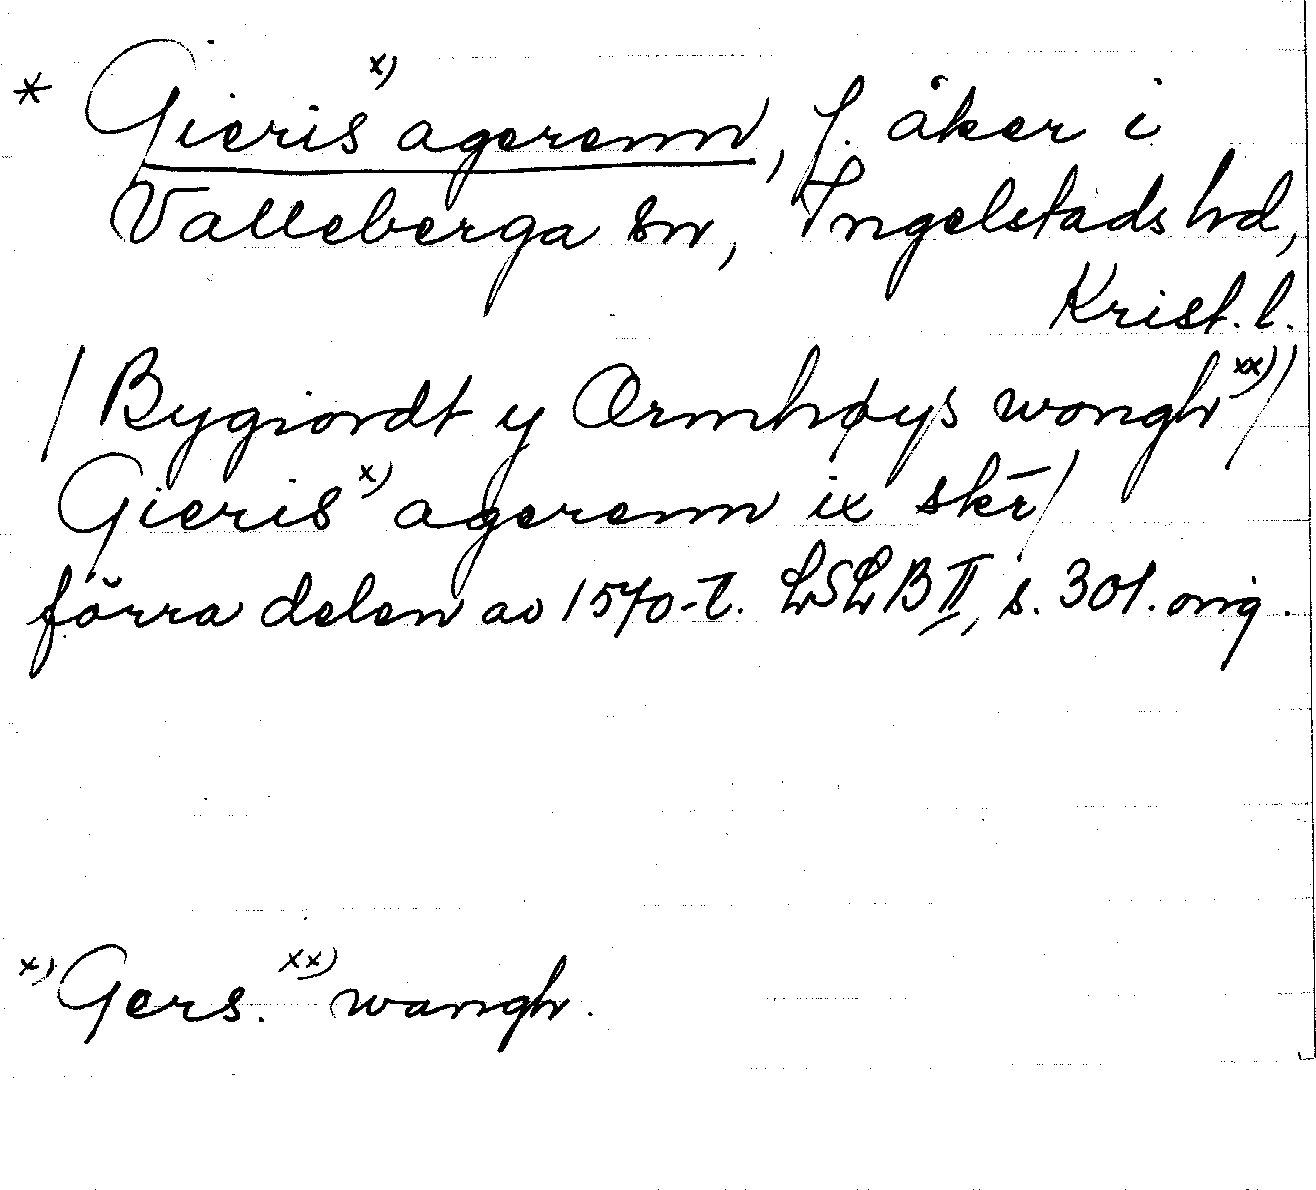 * Gieris x) agerenn, f. åker i
Valleberga sn, Ingelstads hd,
Krist. l.
/Bygiordt y Ormhøys wongh xx)/
Gieris x) agerenn ix skē/
förra delen av 1570-t. LSLB II, s. 301. orig.
x) Gers. xx) wangh.